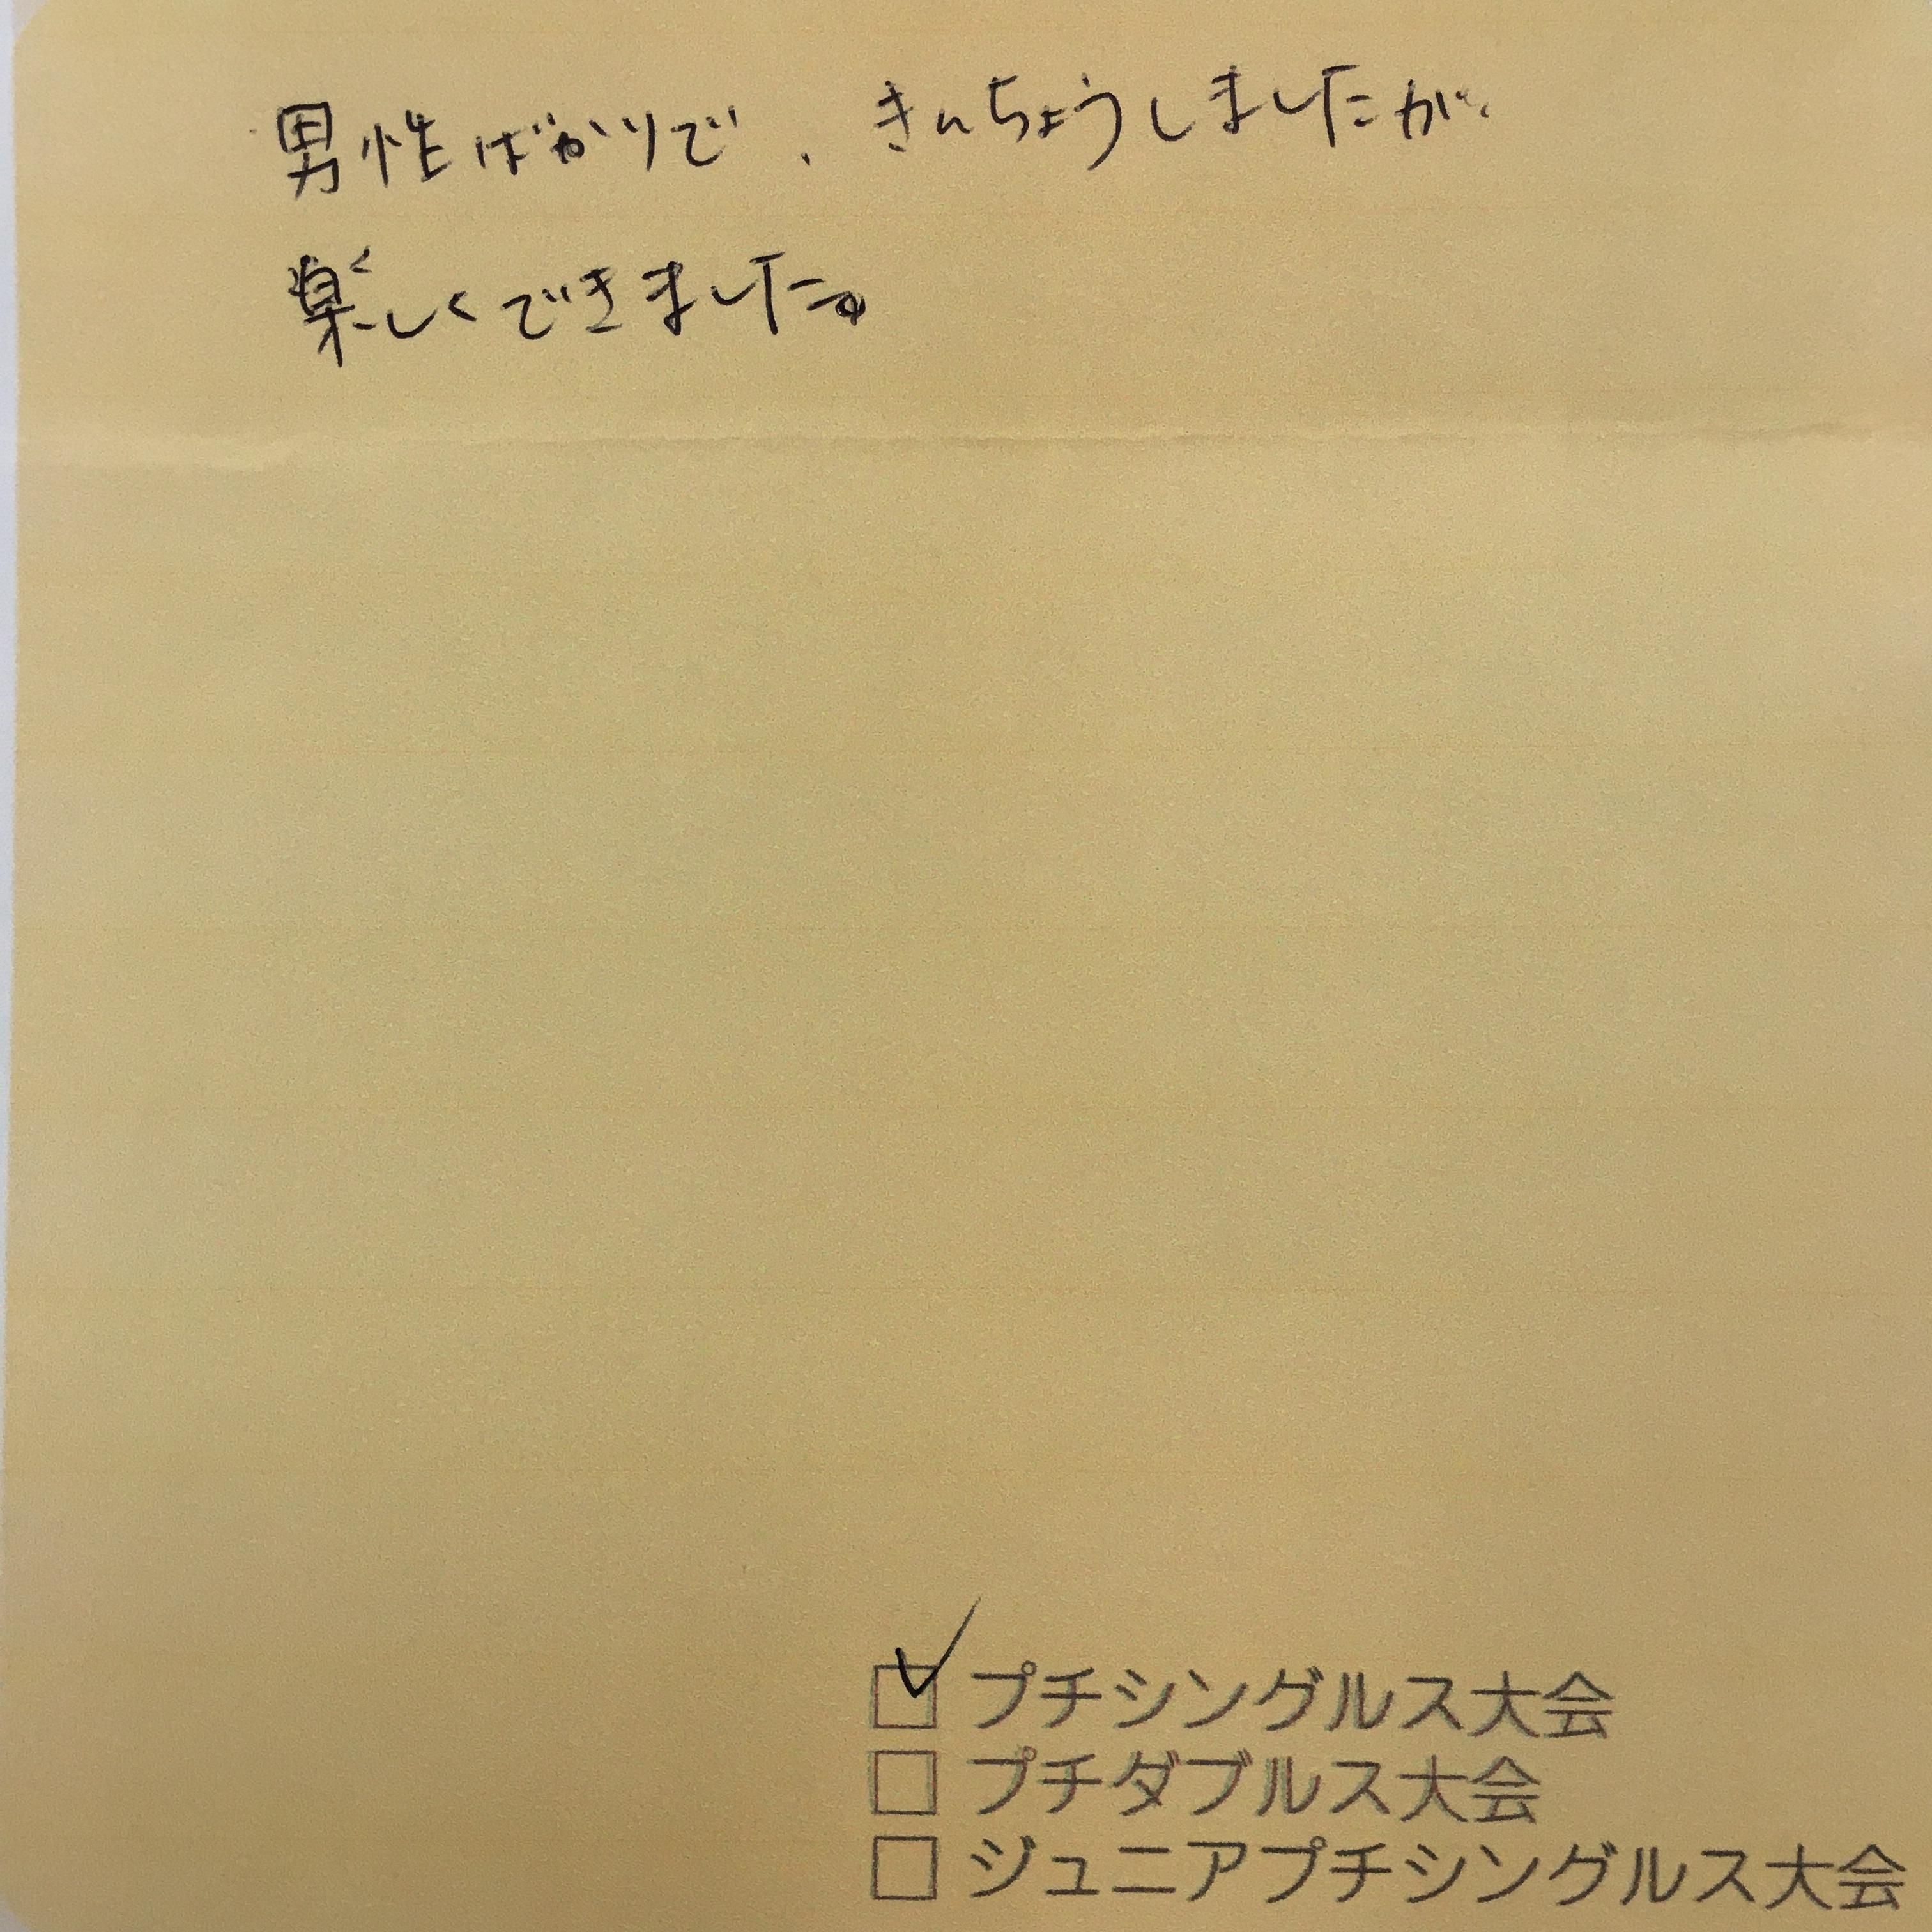 男性ばかりで、きんちょうしましたが、
楽しくできました。
☑プチシングルス大会
□プチダブルス大会
□ジュニアプチシングルス大会